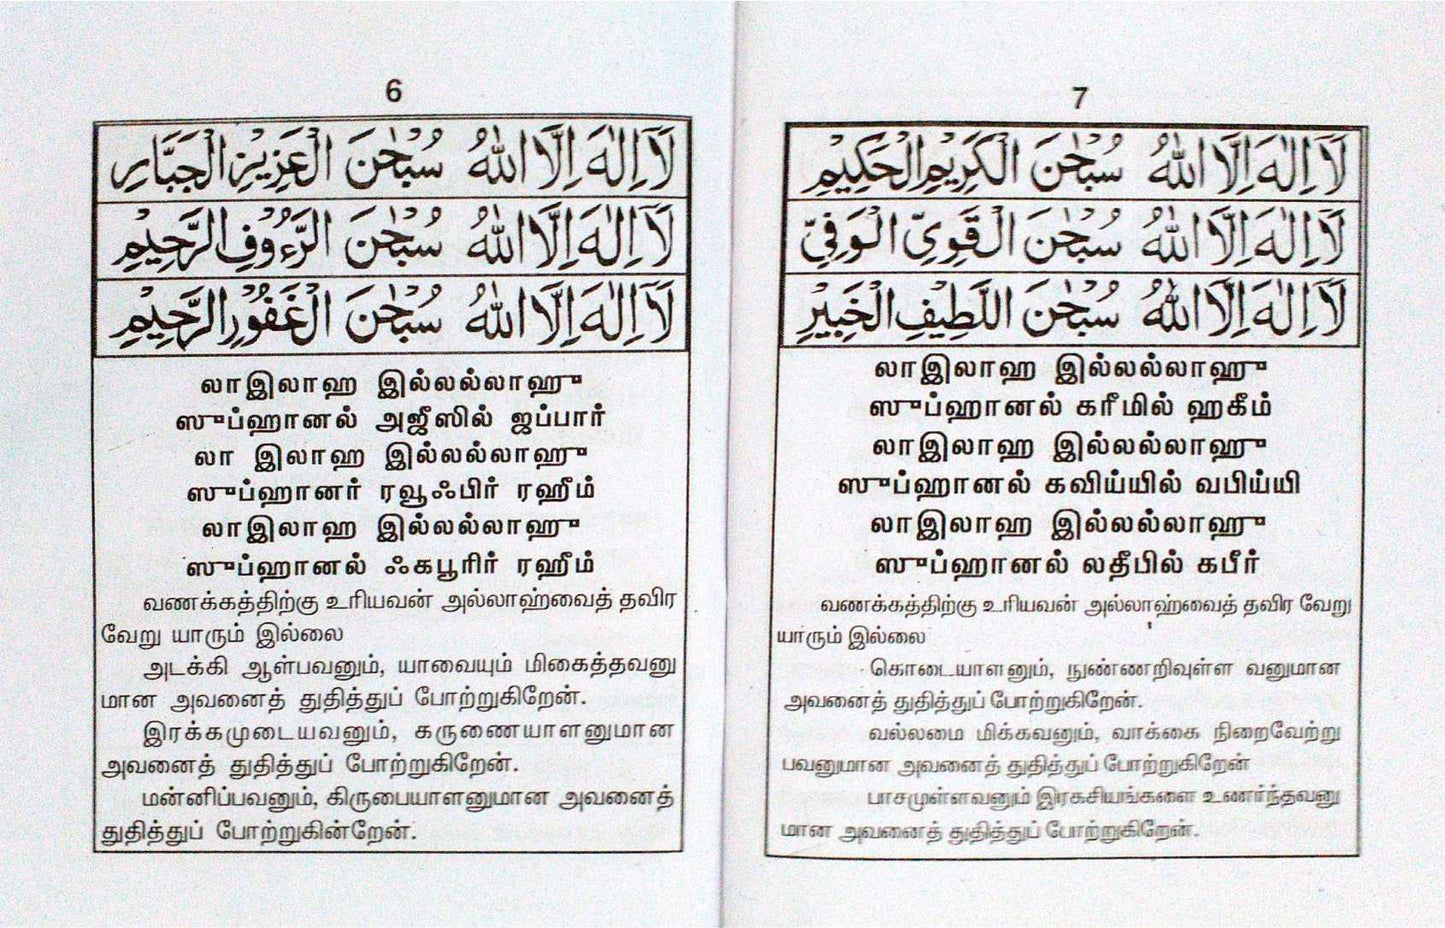 6
لَآ اِلٰهَ اِلَّا اللّٰهُ سُبْحٰنَ الْعَزِيْزِ الْجَبَّارِ
لَآ اِلٰهَ اِلَّا اللّٰهُ سُبْحٰنَ الرَّءُوْفِ الرَّحِيْمِ
لَآ اِلٰهَ اِلَّا اللّٰهُ سُبْحٰنَ الْغَفُوْرِ الرَّحِيْمِ
லாஇலாஹ இல்லல்லாஹு
ஸுப்ஹானல் அஜீஸில் ஜப்பார்
லா இலாஹ இல்லல்லாஹு
ஸுப்ஹானர் ரவூஃபிர் ரஹீம்
லாஇலாஹ இல்லல்லாஹு
ஸுப்ஹானல் ஃகபூரிர் ரஹீம்
வணக்கத்திற்கு உரியவன் அல்லாஹ்வைத் தவிர
வேறு யாரும் இல்லை
அடக்கி ஆள்பவனும், யாவையும் மிகைத்தவனு
மான அவனைத் துதித்துப் போற்றுகிறேன்.
இரக்கமுடையவனும், கருணையாளனுமான
அவனைத் துதித்துப் போற்றுகிறேன்.
மன்னிப்பவனும், கிருபையாளனுமான அவனைத்
துதித்துப் போற்றுகின்றேன்.
7
لَآ اِلٰهَ اِلَّا اللّٰهُ سُبْحٰنَ الْكَرِيْمِ الْحَكِيْمِ
لَآ اِلٰهَ اِلَّا اللّٰهُ سُبْحٰنَ الْقَوِىِّ الْوَفِىِّ
لَآ اِلٰهَ اِلَّا اللّٰهُ سُبْحٰنَ اللَّطِيْفِ الْخَبِيْرِ
லாஇலாஹ இல்லல்லாஹு
ஸுப்ஹானல் கரீமில் ஹகீம்
லாஇலாஹ இல்லல்லாஹு
ஸுப்ஹானல் கவிய்யில் வபிய்யி
லாஇலாஹ இல்லல்லாஹு
ஸுப்ஹானல் லதீபில் கபீர்
வணக்கத்திற்கு உரியவன் அல்லாஹ்வைத் தவிர வேறு
யாரும் இல்லை
கொடையாளனும், நுண்ணறிவுள்ள வனுமான
அவனைத் துதித்துப் போற்றுகிறேன்.
வல்லமை மிக்கவனும், வாக்கை நிறைவேற்று
பவனுமான அவனைத் துதித்துப் போற்றுகிறேன்
பாசமுள்ளவனும் இரகசியங்களை உணர்ந்தவனு
மான அவனைத் துதித்துப் போற்றுகிறேன்.